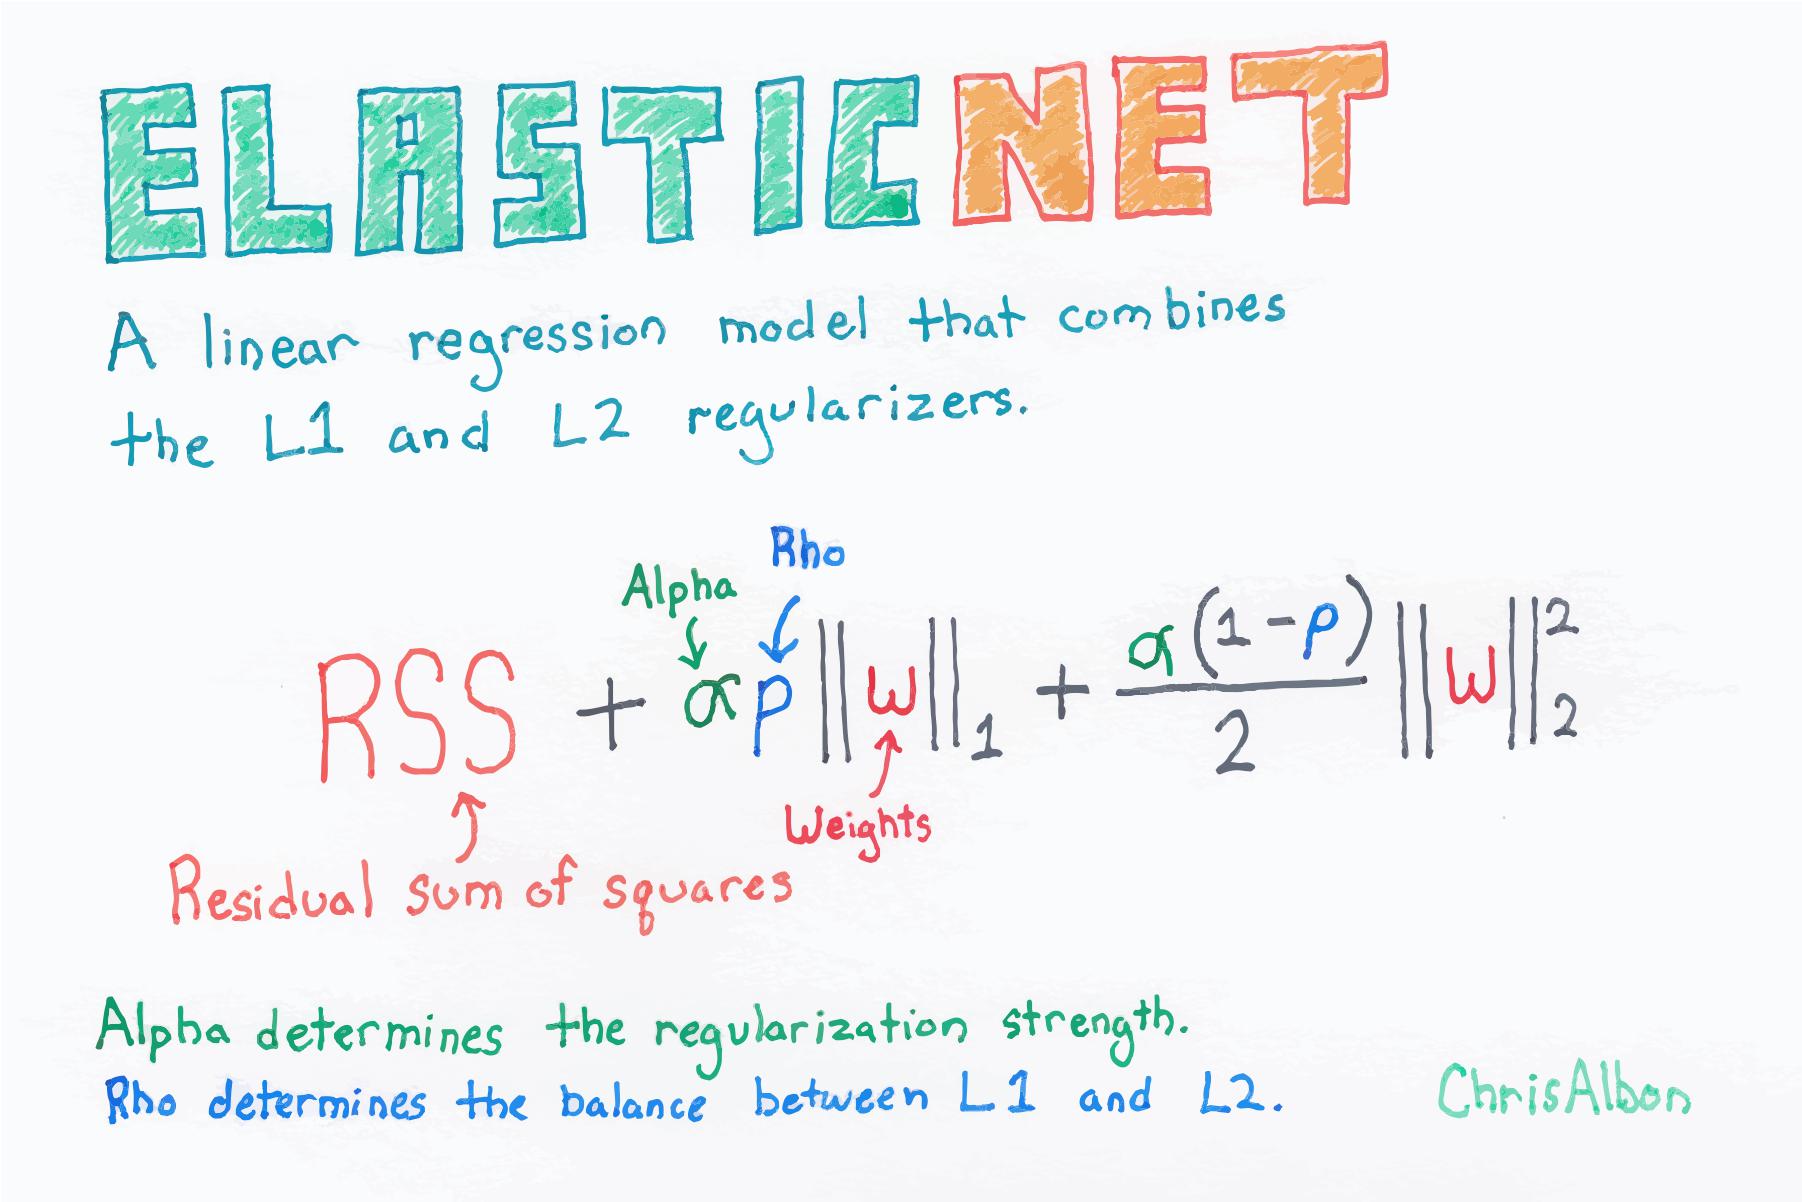 ELASTIC NET
A linear regression model that combines
the L1 and L2 regularizers.
Rho
Alpha
RSS + α ρ ||w||₁ + α(1-ρ)/2 ||w||₂²
Weights
Residual sum of squares
Alpha determines the regularization strength.
Rho determines the balance between L1 and L2.
ChrisAlbon